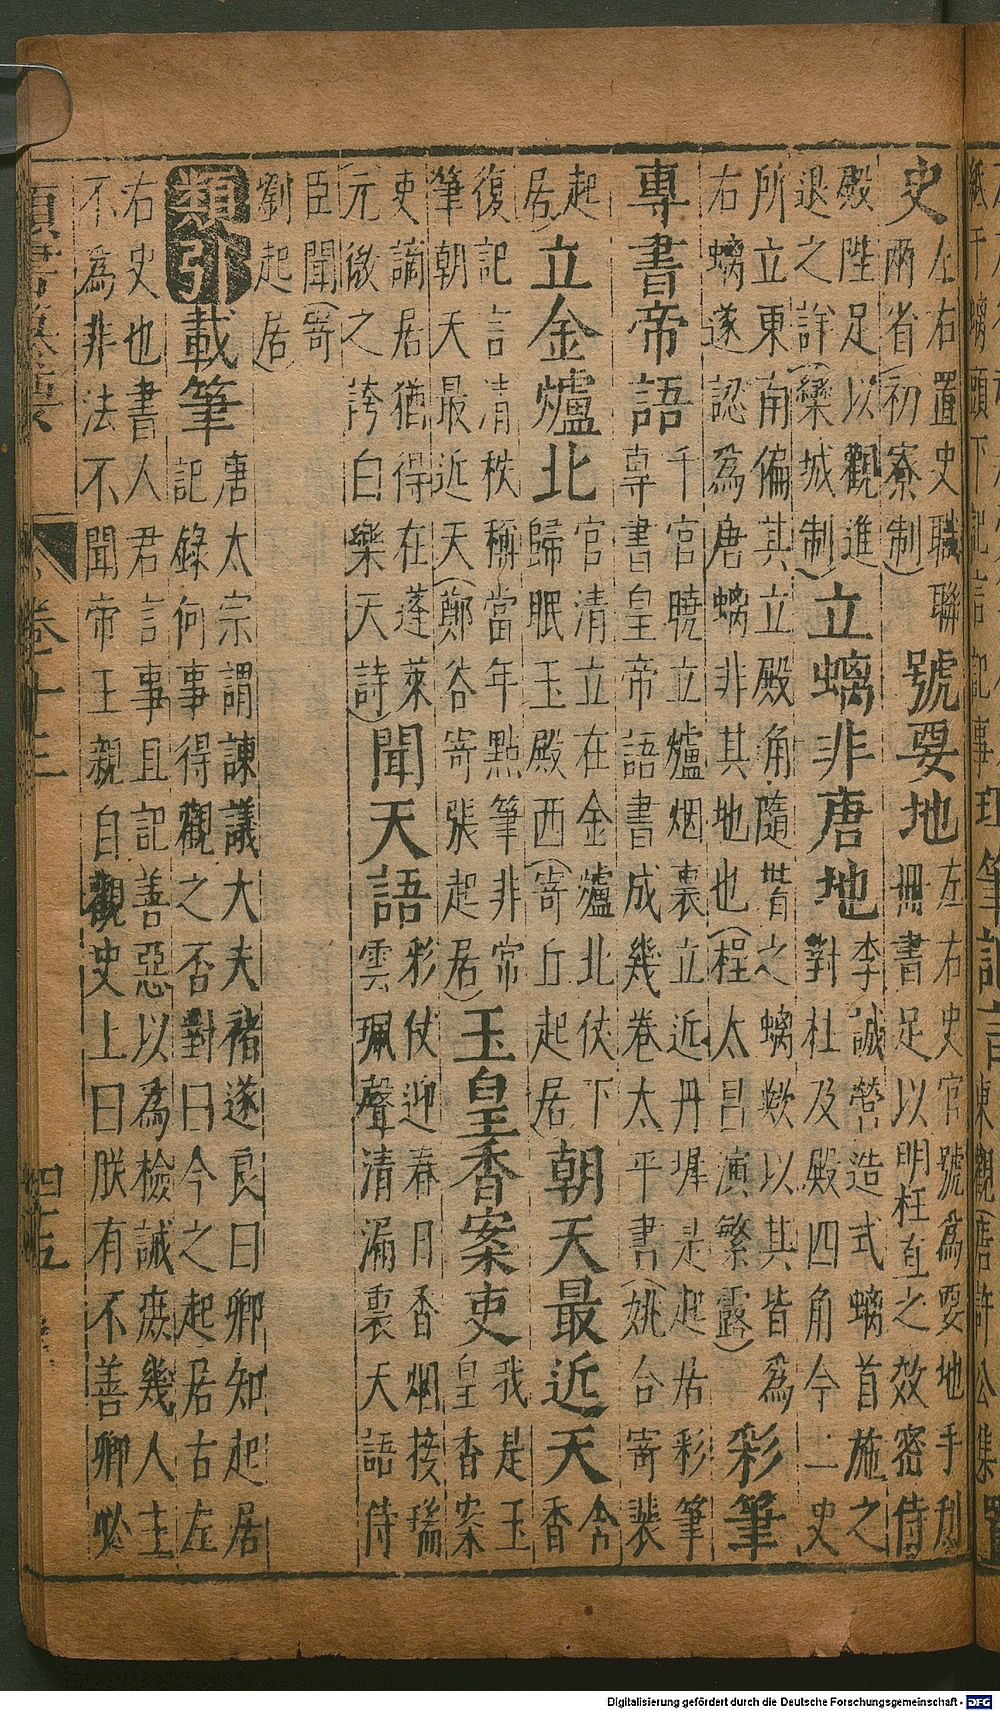 史左右置史職聯
兩省(初寮制)
號要地左右史官號爲要地手利
冊書足以明枉直之效密侍
殿陛足以觀進
退之詳(欒城制)
立螭非唐地李誡營造式螭首施之
對杜及殿四角今上史
所立東南偏其立殿角隨堦之螭欤以其皆爲
右螭遂認爲唐螭非其地也(程太昌演繁露)
彩筆
專書帝語千官曉立爐烟裏立近丹墀是起居彩筆
専書皇帝語書成幾卷太平書(姚合寄裴
起
居)
立金爐北官清立在金爐北仗下
歸眠玉殿西(寄丘起居)
朝天最近天含
香
復記言清秩稱當年點筆非常
筆朝天最近天(鄭谷寄張起居)
玉皇香案吏我是玉
皇香案
吏謫居猶得在蓬萊
元微之誇白樂天詩)
聞天語彩仗迎春日香烟接瑞
雲珮聲清漏裏天語侍
臣聞(寄
劉起居)
類引
載筆唐太宗謂諫議大夫褚遂良曰卿知起居
記錄何事得觀之否對曰今之起居古左
右史也書人君言事且記善惡以爲檢誡庶幾人主
不爲非法不聞帝王親自觀史上曰朕有不善卿必
卷十三
四十五
Digitalisierung gefördert durch die Deutsche Forschungsgemeinschaft - DFG